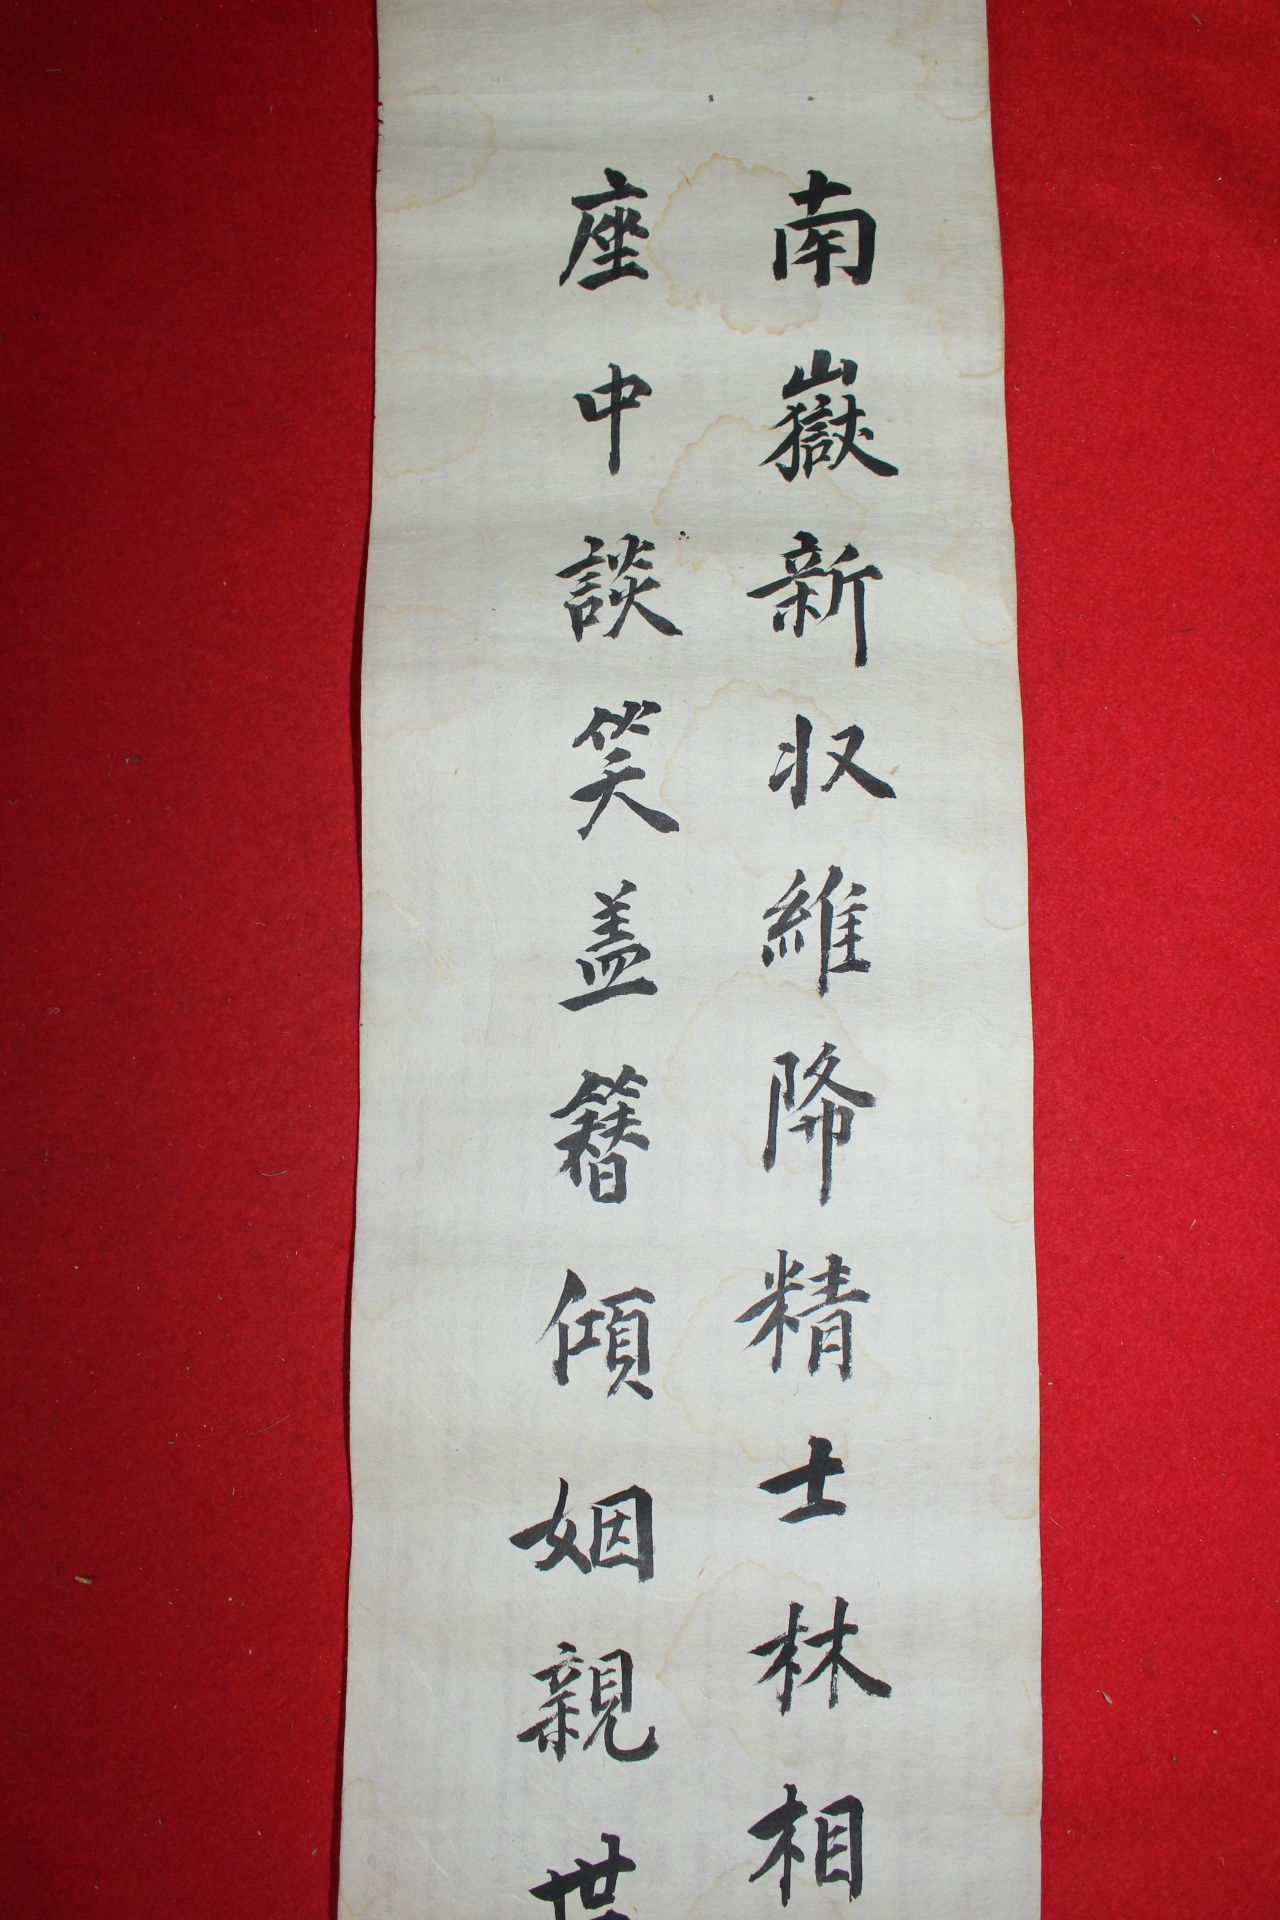 南嶽新収維降精士林相
座中談笑盖簮傾姻親世